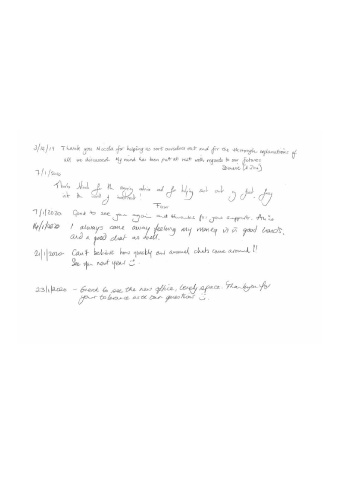 3/12/19 Thank you Nicola for helping us sort ourselves out and for the thorough explanations of
all we discussed. My mind has been put at rest with regards to our futures.
7/1/2020
Thanks Nicola for the enjoy advice and for helping sort out my
at the
7/1/2020 Good to see you again and thankyou for your support.
14/1/2020 I always come away feeling my money is in good hands,
and a good chat as well.
21/1/2020 Can't believe how quickly our annual chats come around!!
See you next year! ☺
23/1/2020 - Great to see the new office, lovely space. Thankyou for
your tolerance with our questions ☺.